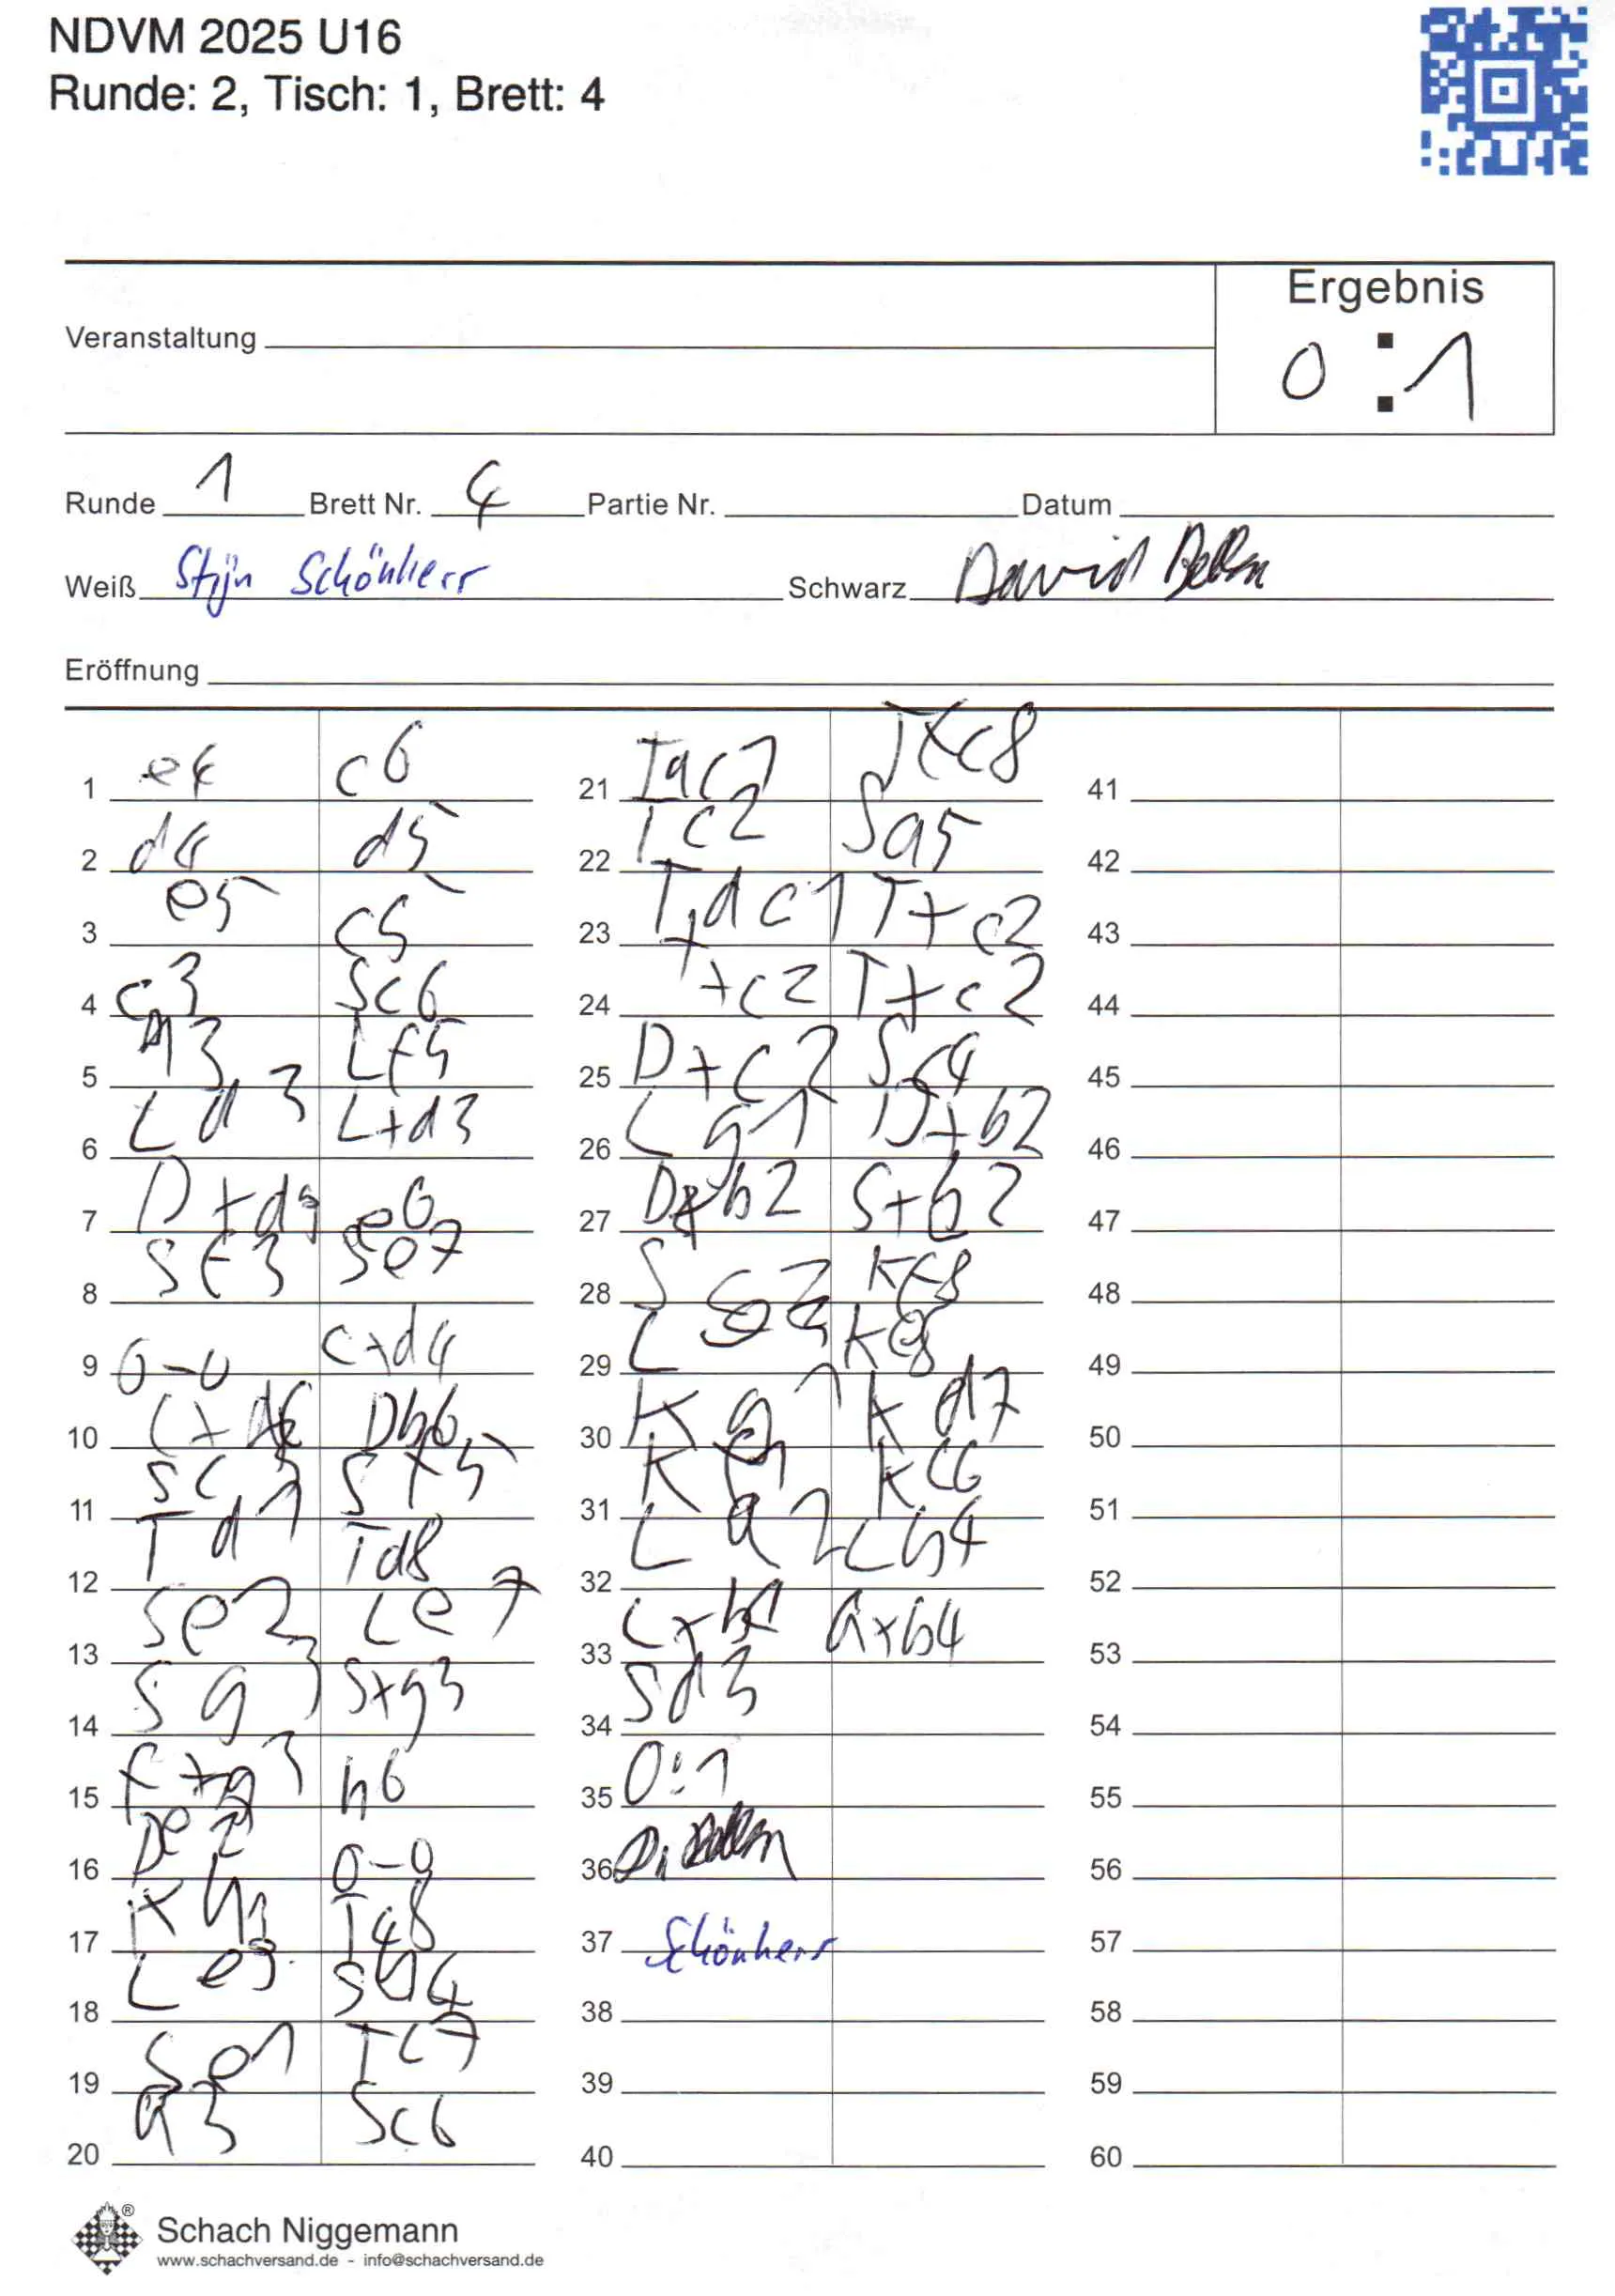 NDVM 2025 U16
Runde: 2, Tisch: 1, Brett: 4
Ergebnis
0 : 1
Veranstaltung
Runde 1 Brett Nr. 4 Partie Nr. Datum
Weiß Stijn Schönherr Schwarz David
Eröffnung
1 e4 c6
2 d4 d5
3 e5 c5
4 c3 Sc6
5 Lf5
6 Ld3 L+d3
7 D+d3 e6
8 Sf3 Se7
9 0-0 c+d4
10 c+d4 Db6
11 Sc3 Sf5
12 Td1 Td8
13 Se2 Le7
14 Sg3 Sxg3
15 f+g3 h6
16 De2 0-0
17 Kh1
18 Le3 Sa4
19 Se1 Tc7
20 a3 Sc6
21 Tac1 Tfc8
22 Tc2 Sa5
23 Tdc1 T+c2
24 T+c2 T+c2
25 D+c2 Sc4
26 Lg1 D+b2
27 Dxb2 S+b2
28 S Kf8
29 L Ke8
30 Kg1 Kd7
31 Kf1 Kc6
32 La2 Lb4
33 Lxb4 axb4
34 Sd3
35 0:1
36
37 Schönherr
38
39
40
41
42
43
44
45
46
47
48
49
50
51
52
53
54
55
56
57
58
59
60
®
Schach Niggemann
www.schachversand.de - info@schachversand.de